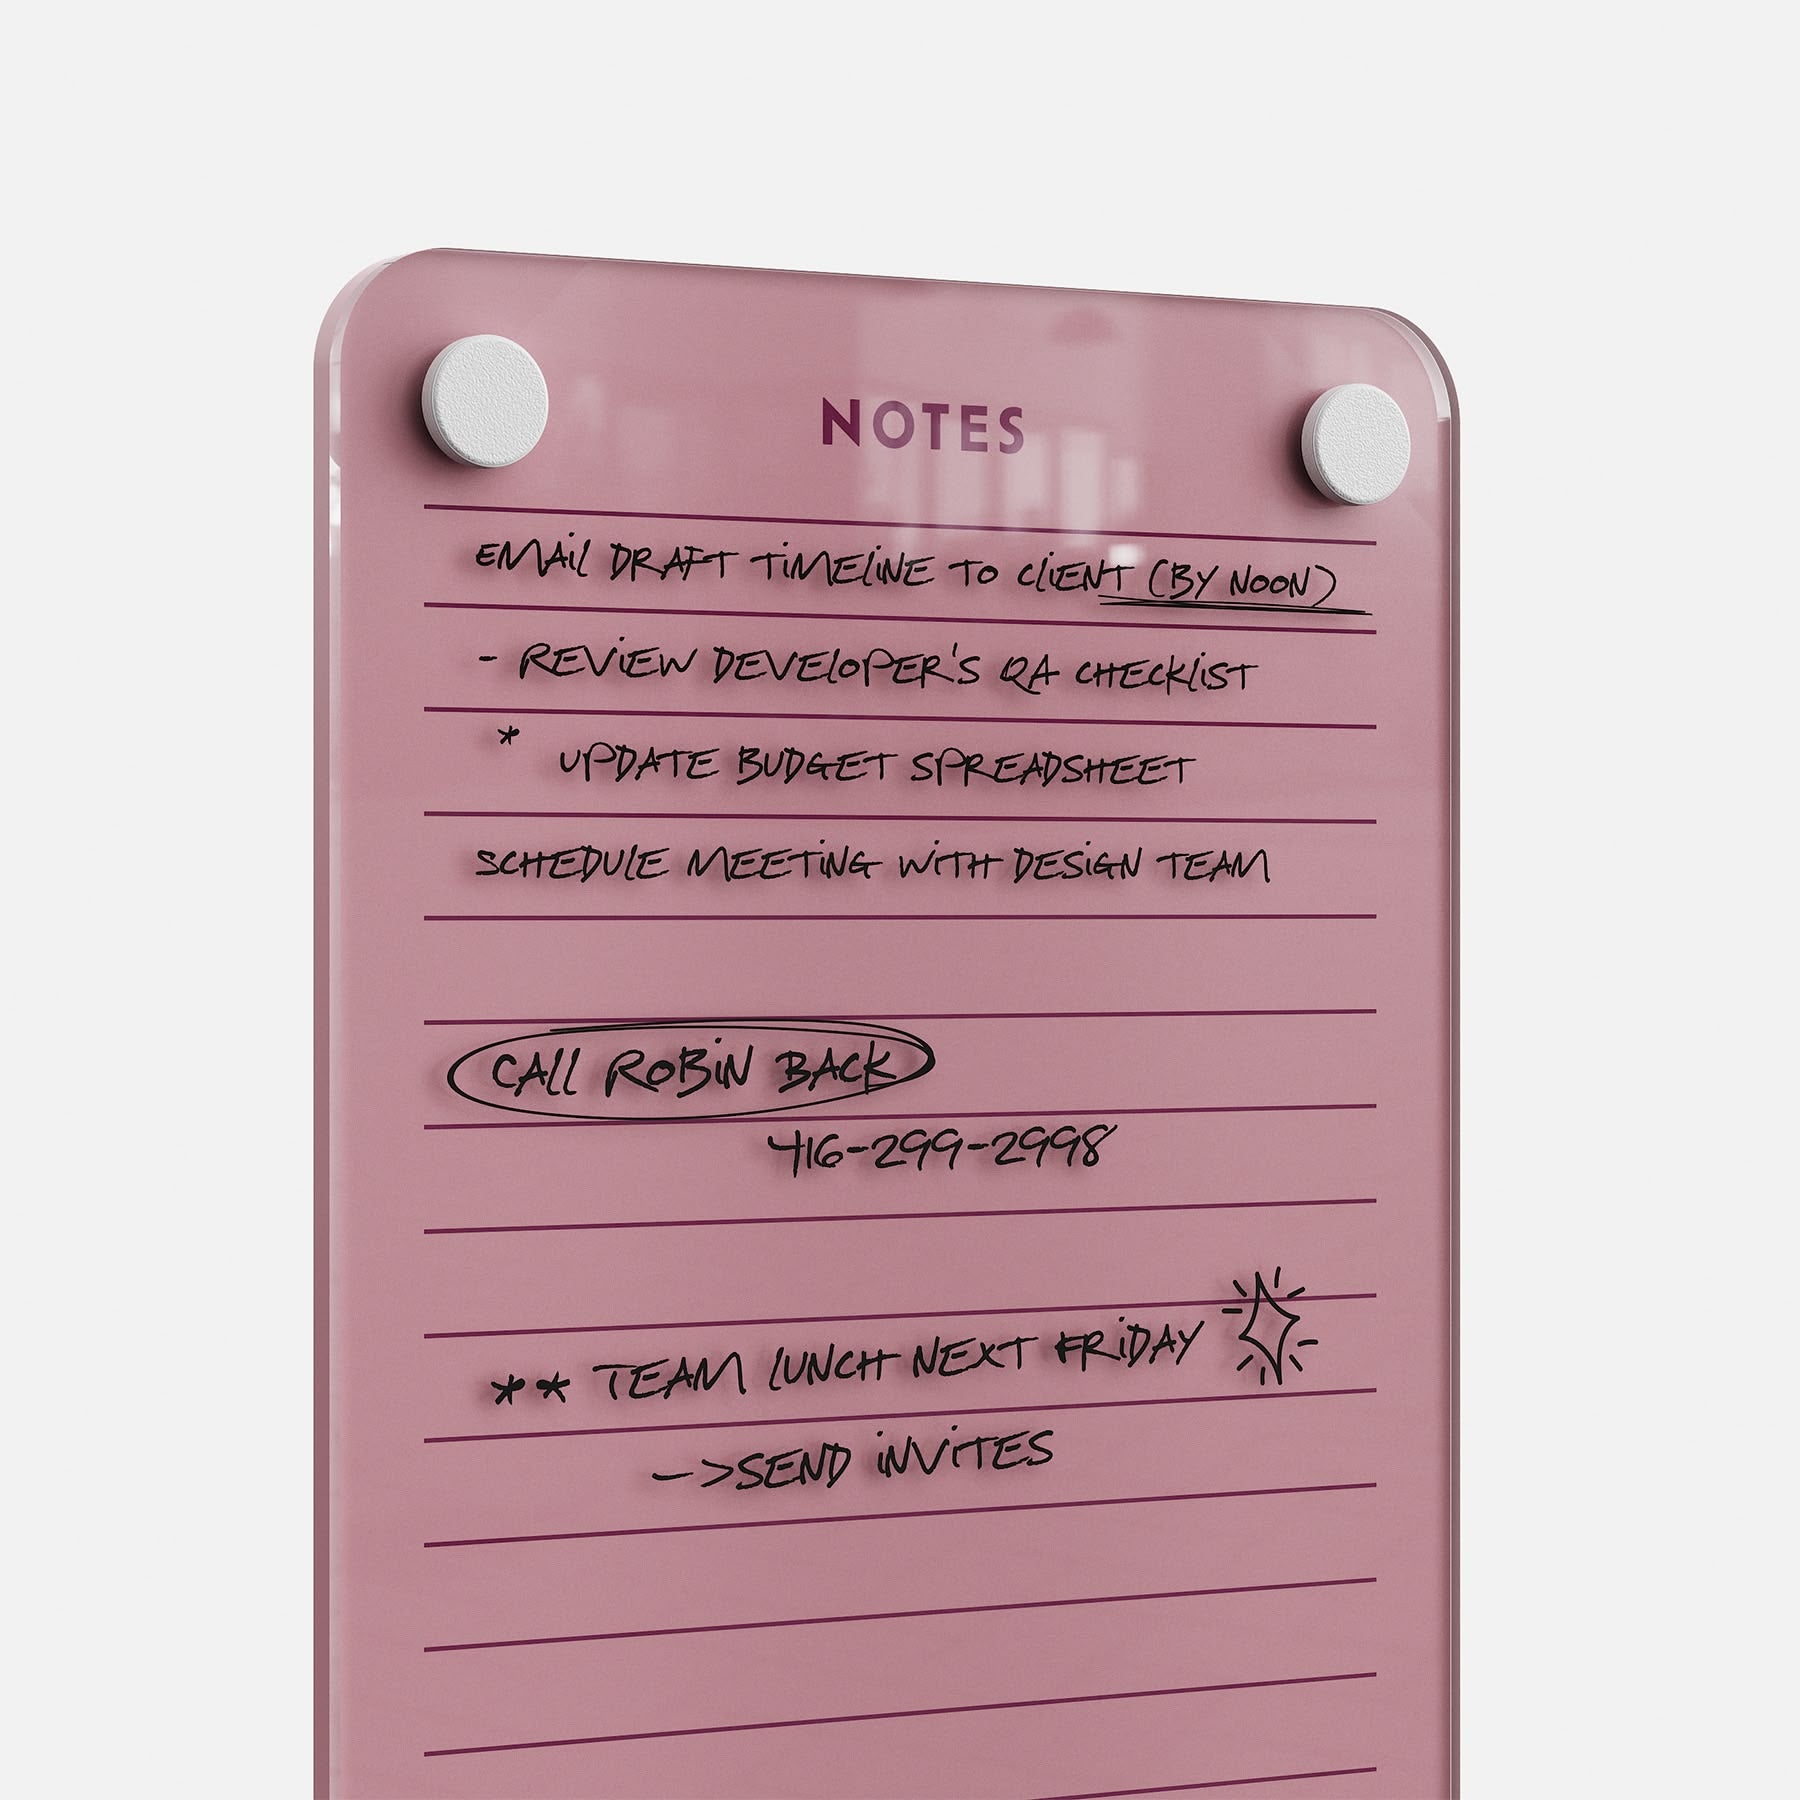 NOTES
EMAIL DRAFT TIMELINE TO CLIENT (BY NOON)
- REVIEW DEVELOPER'S QA CHECKLIST
* UPDATE BUDGET SPREADSHEET
SCHEDULE MEETING WITH DESIGN TEAM
CALL ROBIN BACK
416-299-2998
** TEAM LUNCH NEXT FRIDAY
->SEND INVITES